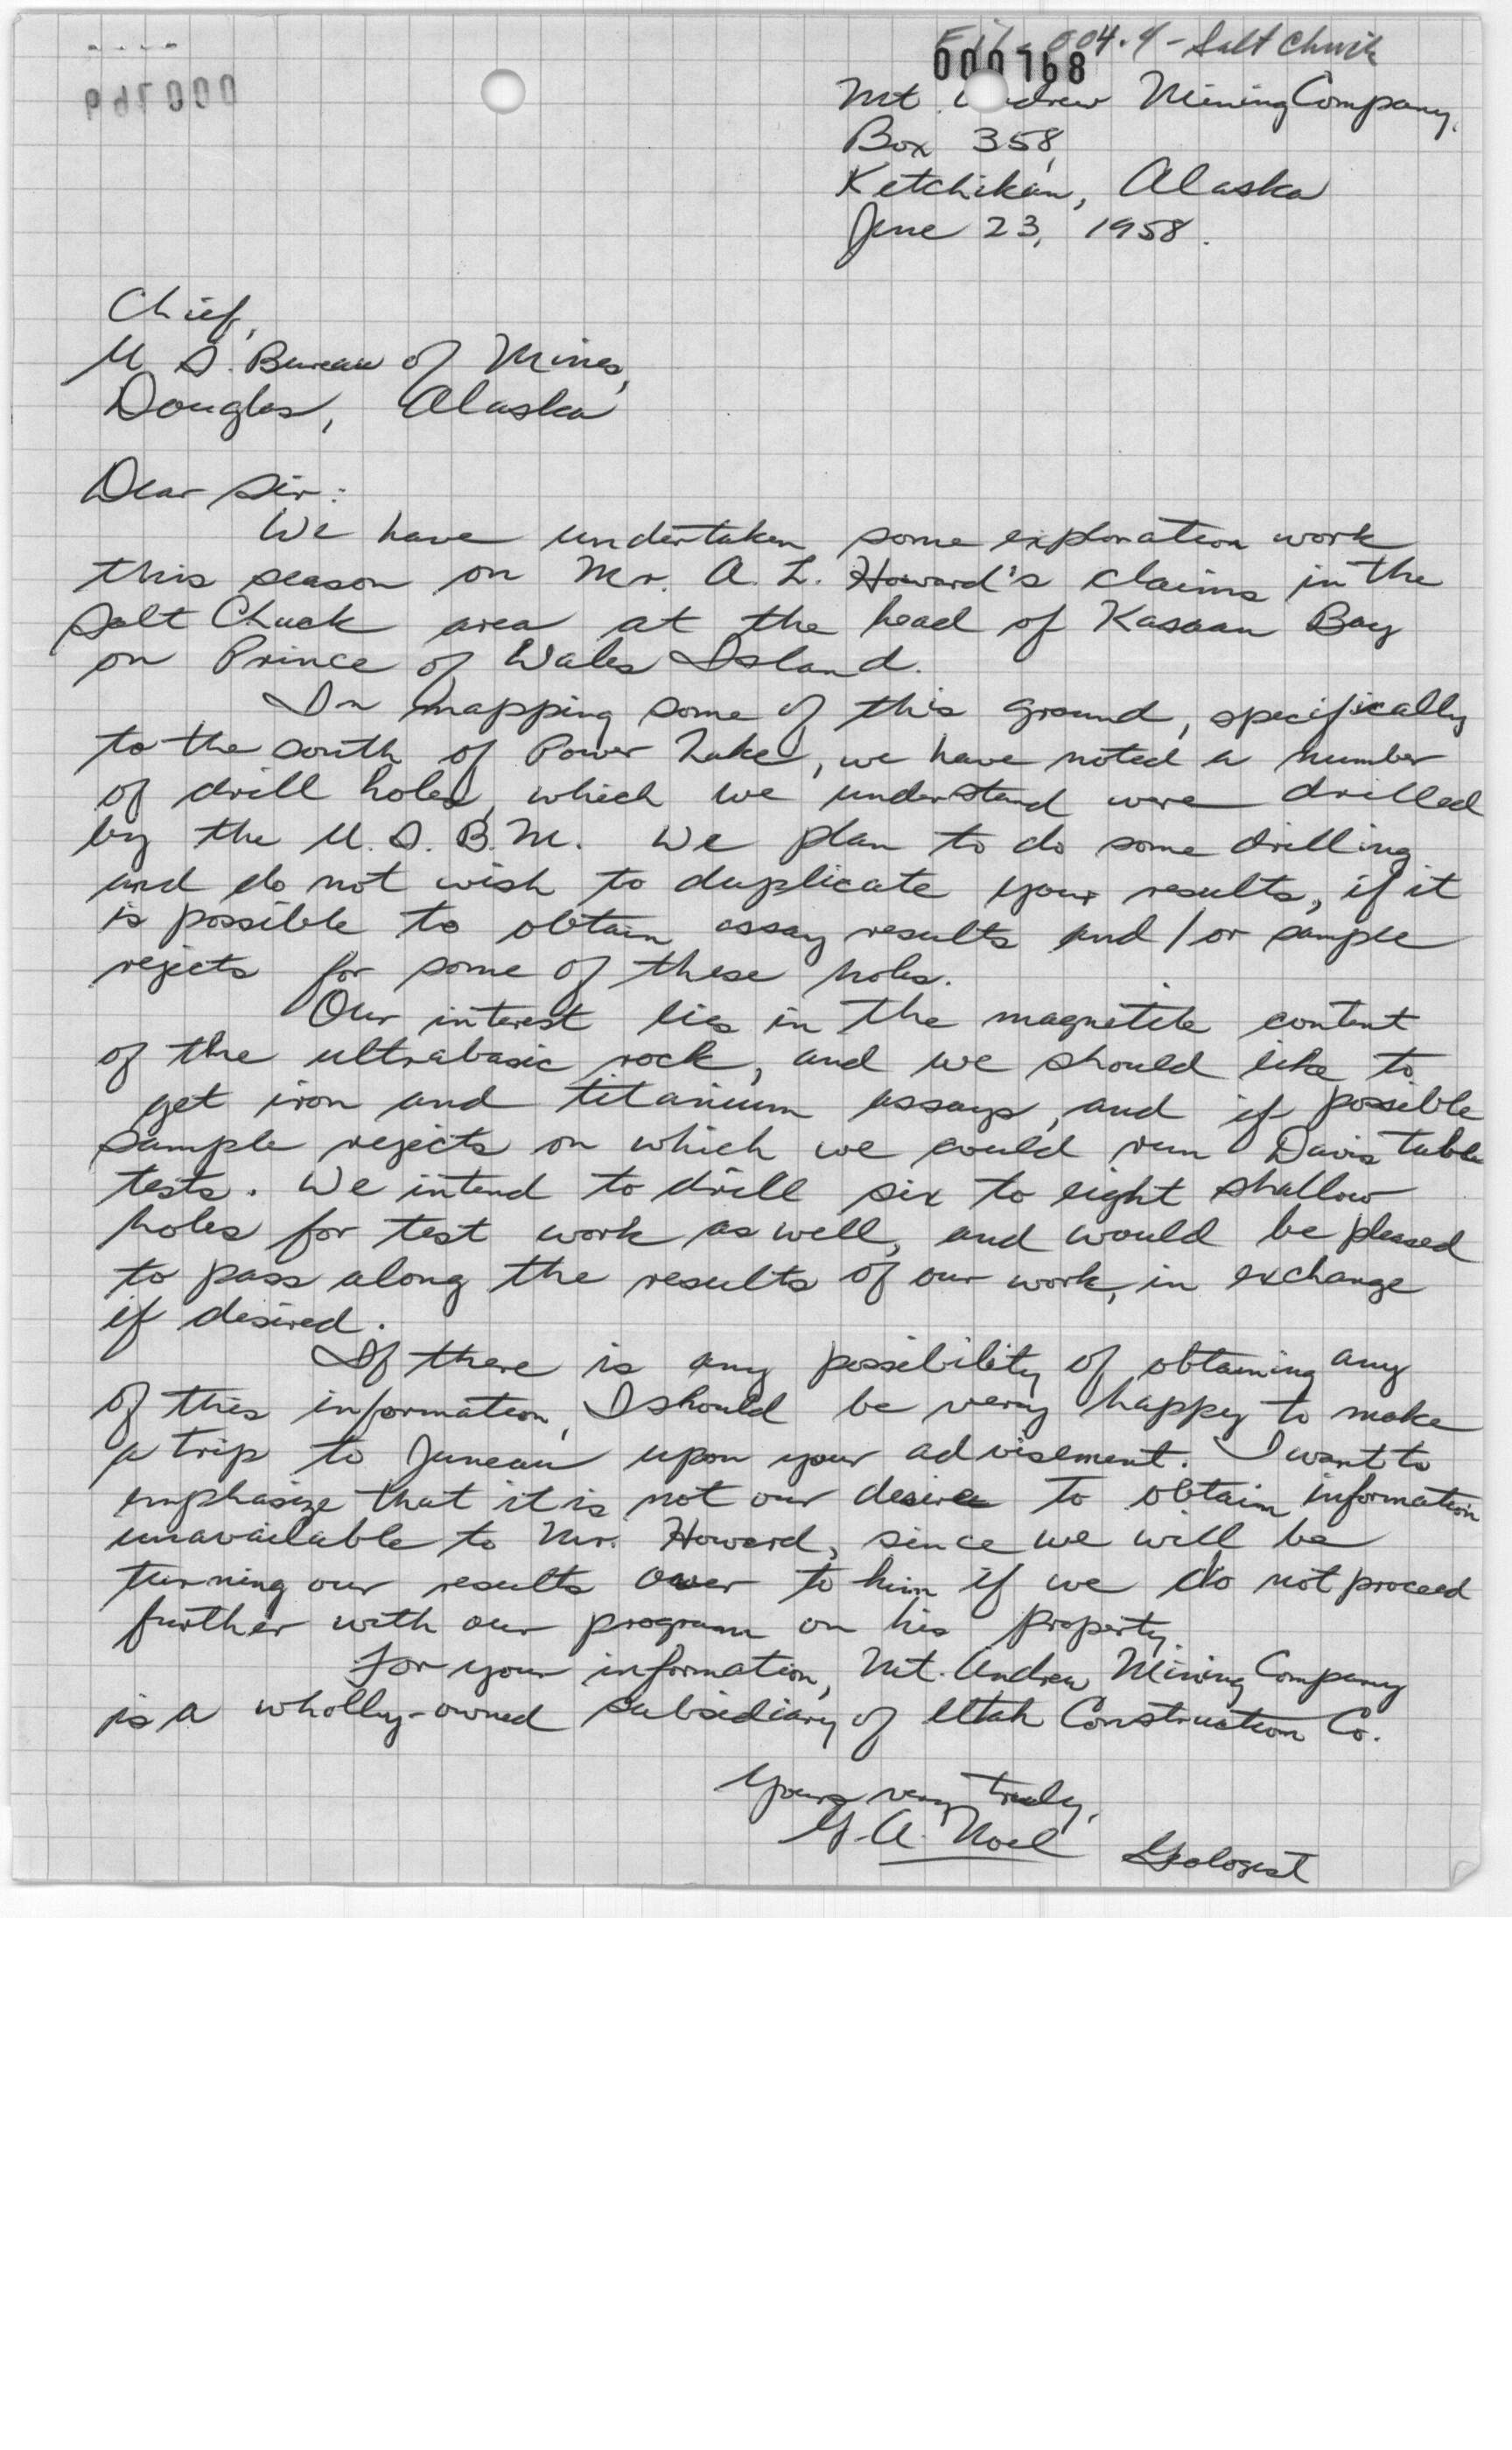 File 004.4 - Salt Chuck
000168
Mt. Andrew Mining Company,
Box 358,
Ketchikan, Alaska
June 23, 1958.
Chief,
U S. Bureau of Mines,
Douglas, Alaska
Dear Sir:
We have undertaken some exploration work
this season on Mr. A. L. Howard's claims in the
Salt Chuck area at the head of Kasaan Bay
on Prince of Wales Island.
In mapping some of this ground, specifically
to the south of Power Lake, we have noted a number
of drill holes, which we understand were drilled
by the U. S. B. M. We plan to do some drilling
and do not wish to duplicate your results, if it
is possible to obtain assay results and/or sample
rejects for some of these holes.
Our interest lies in the magnetite content
of the ultrabasic rock, and we should like to
get iron and titanium assays, and if possible
sample rejects on which we could run Davis tube
tests. We intend to drill six to eight shallow
holes for test work as well, and would be pleased
to pass along the results of our work, in exchange
if desired.
If there is any possibility of obtaining any
of this information, I should be very happy to make
a trip to Juneau upon your advisement. I want to
emphasize that it is not our desire to obtain information
unavailable to Mr. Howard, since we will be
turning our results over to him if we do not proceed
further with our program on his property.
For your information, Mt. Andrew Mining Company
is a wholly-owned subsidiary of Utah Construction Co.
Yours very truly,
G. A. Noel Geologist